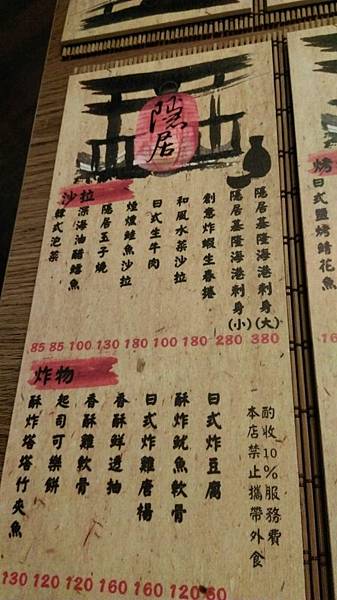 隱居
沙拉
隱居基隆海港刺身(大)
隱居基隆海港刺身(小)
創意炸蝦生春捲
和風水菜沙拉
日式生牛肉
煙燻鮭魚沙拉
隱居玉子燒
深海油醋鱈魚
韓式泡菜
85 85 100 130 180 100 180 280 380
炸物
酌收10%服務費
本店禁止攜帶外食
日式炸豆腐
酥炸魷魚軟骨
日式炸雞唐楊
香酥鮮透抽
香酥雞軟骨
起司可樂餅
酥炸塔塔竹夾魚
130 120 120 160 160 120 60
烤
日式鹽烤鯖花魚